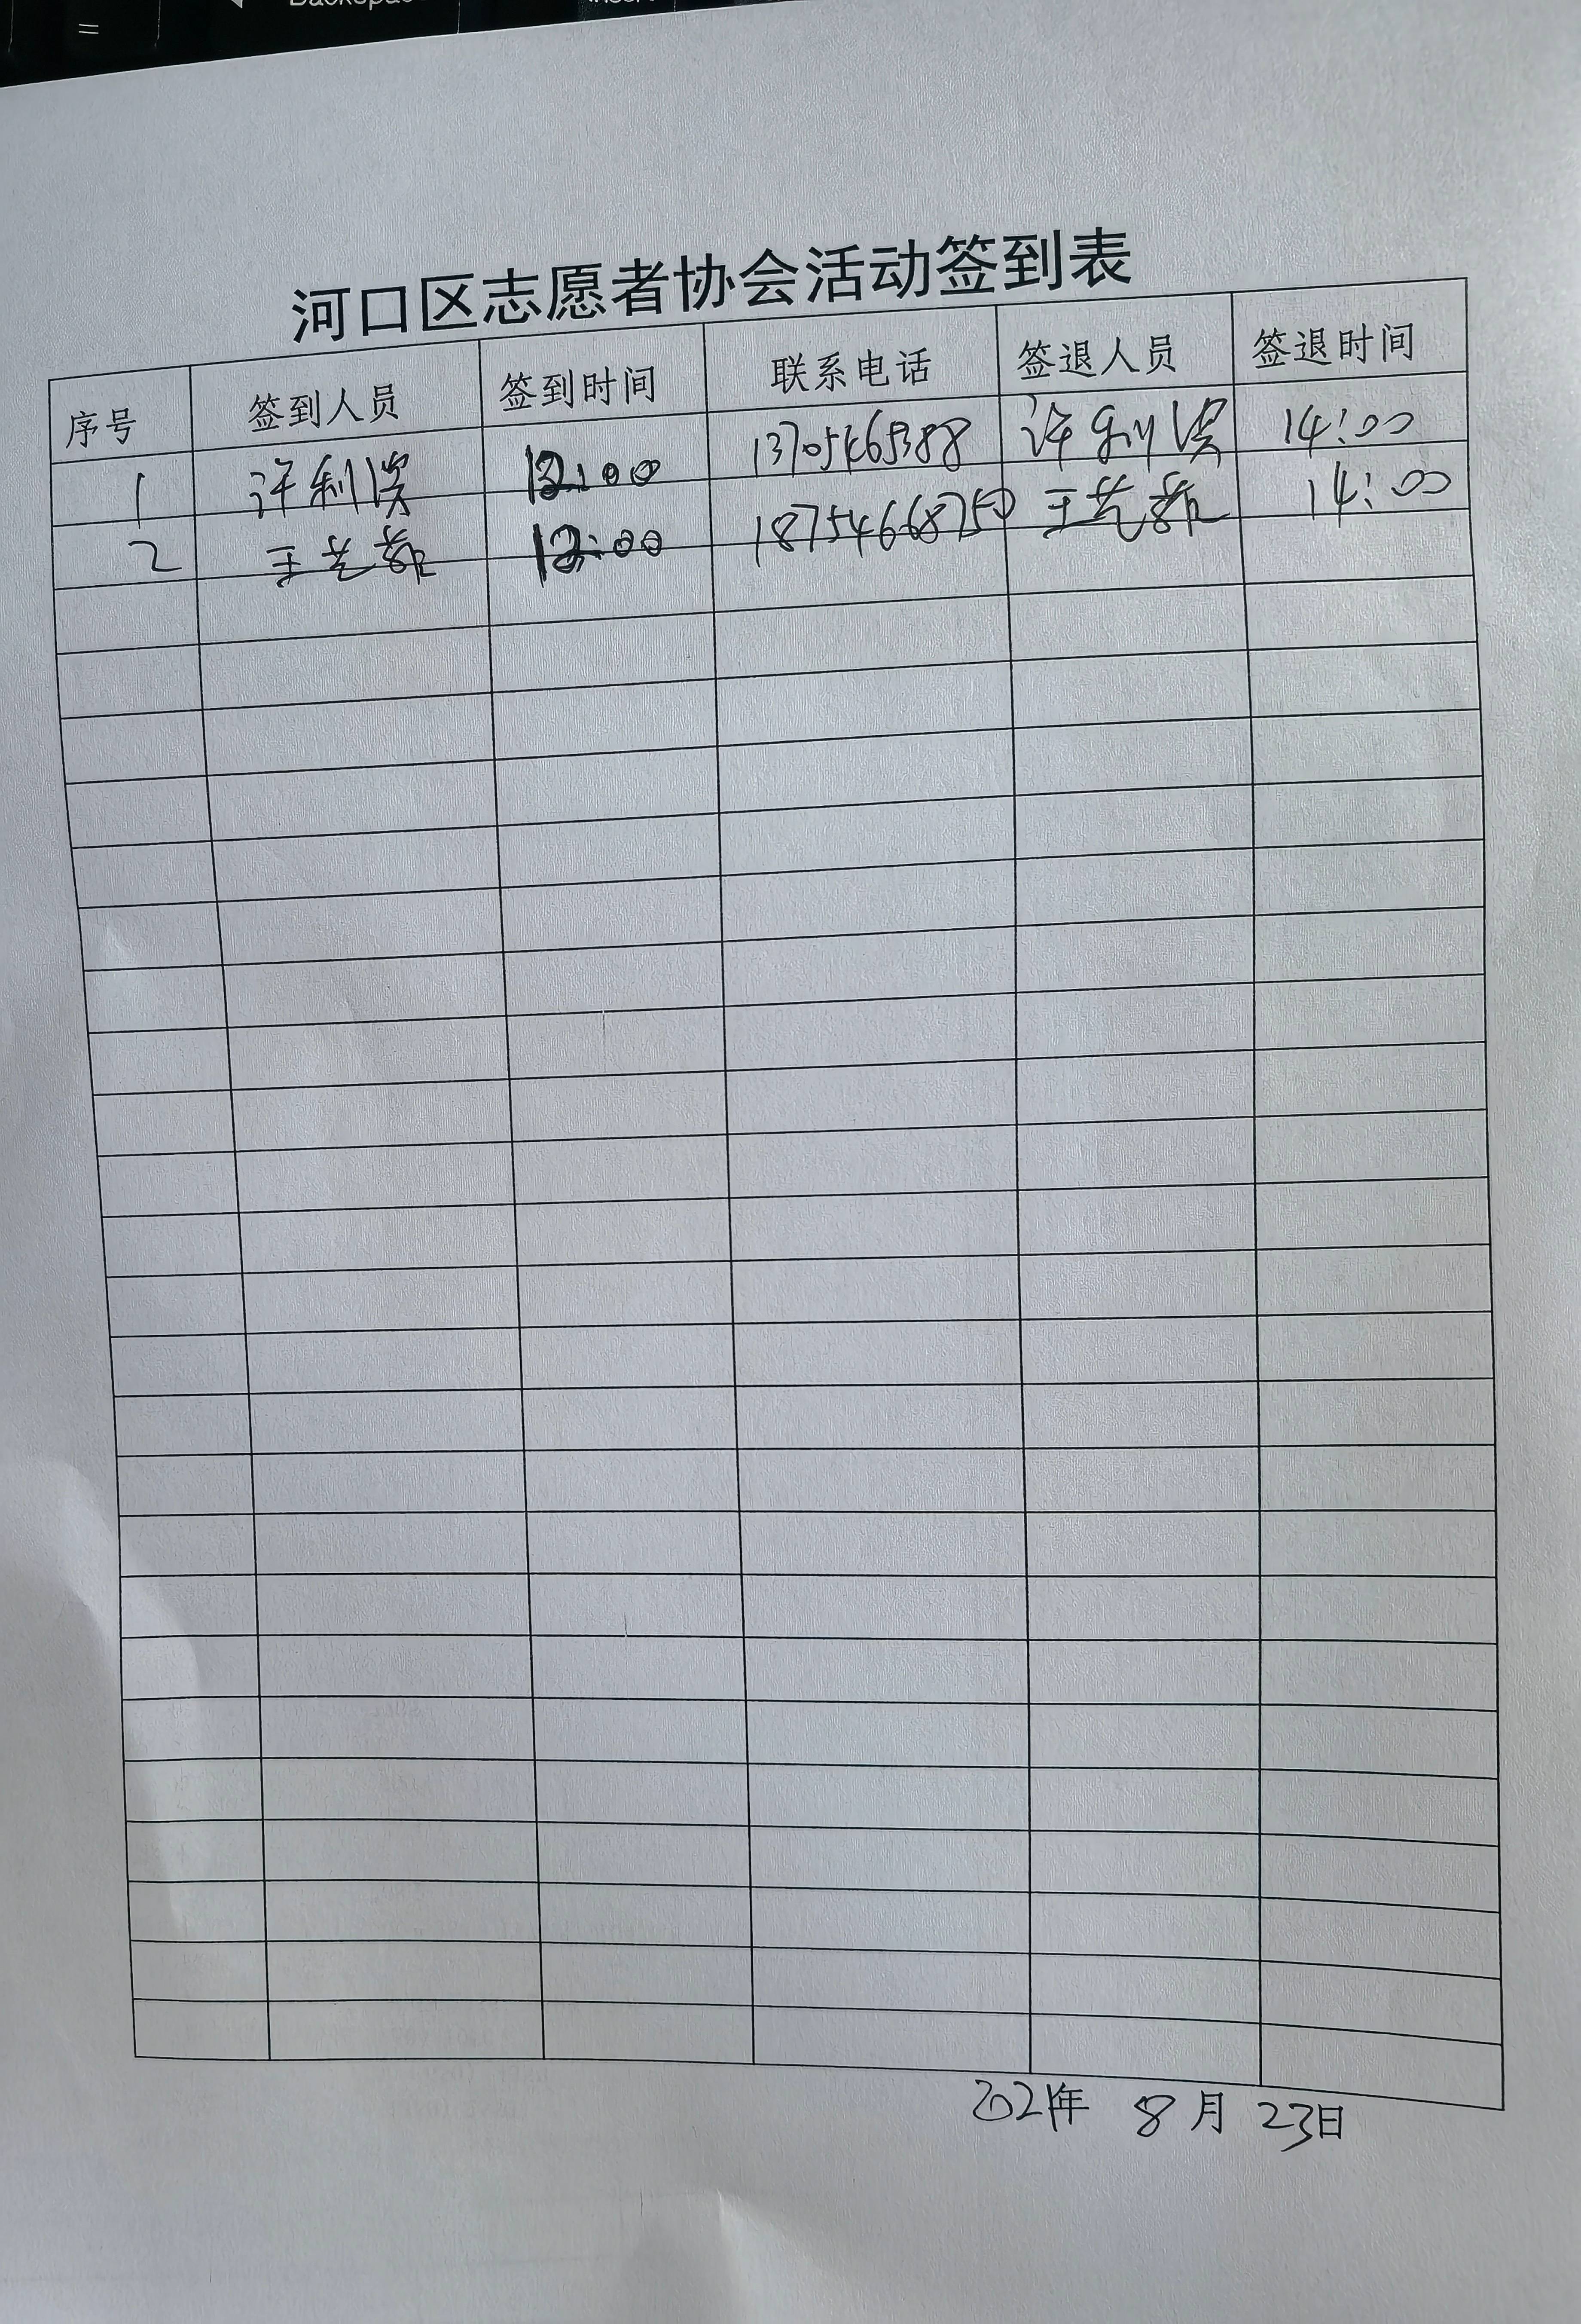 Backspace
Insert
=
河口区志愿者协会活动签到表
序号 签到人员 签到时间 联系电话 签退人员 签退时间
1 许利滨 12:00 13705465388 许利滨 14:00
2 王艺 12:00 18754668750 王艺 14:00
2021年 8月 23日